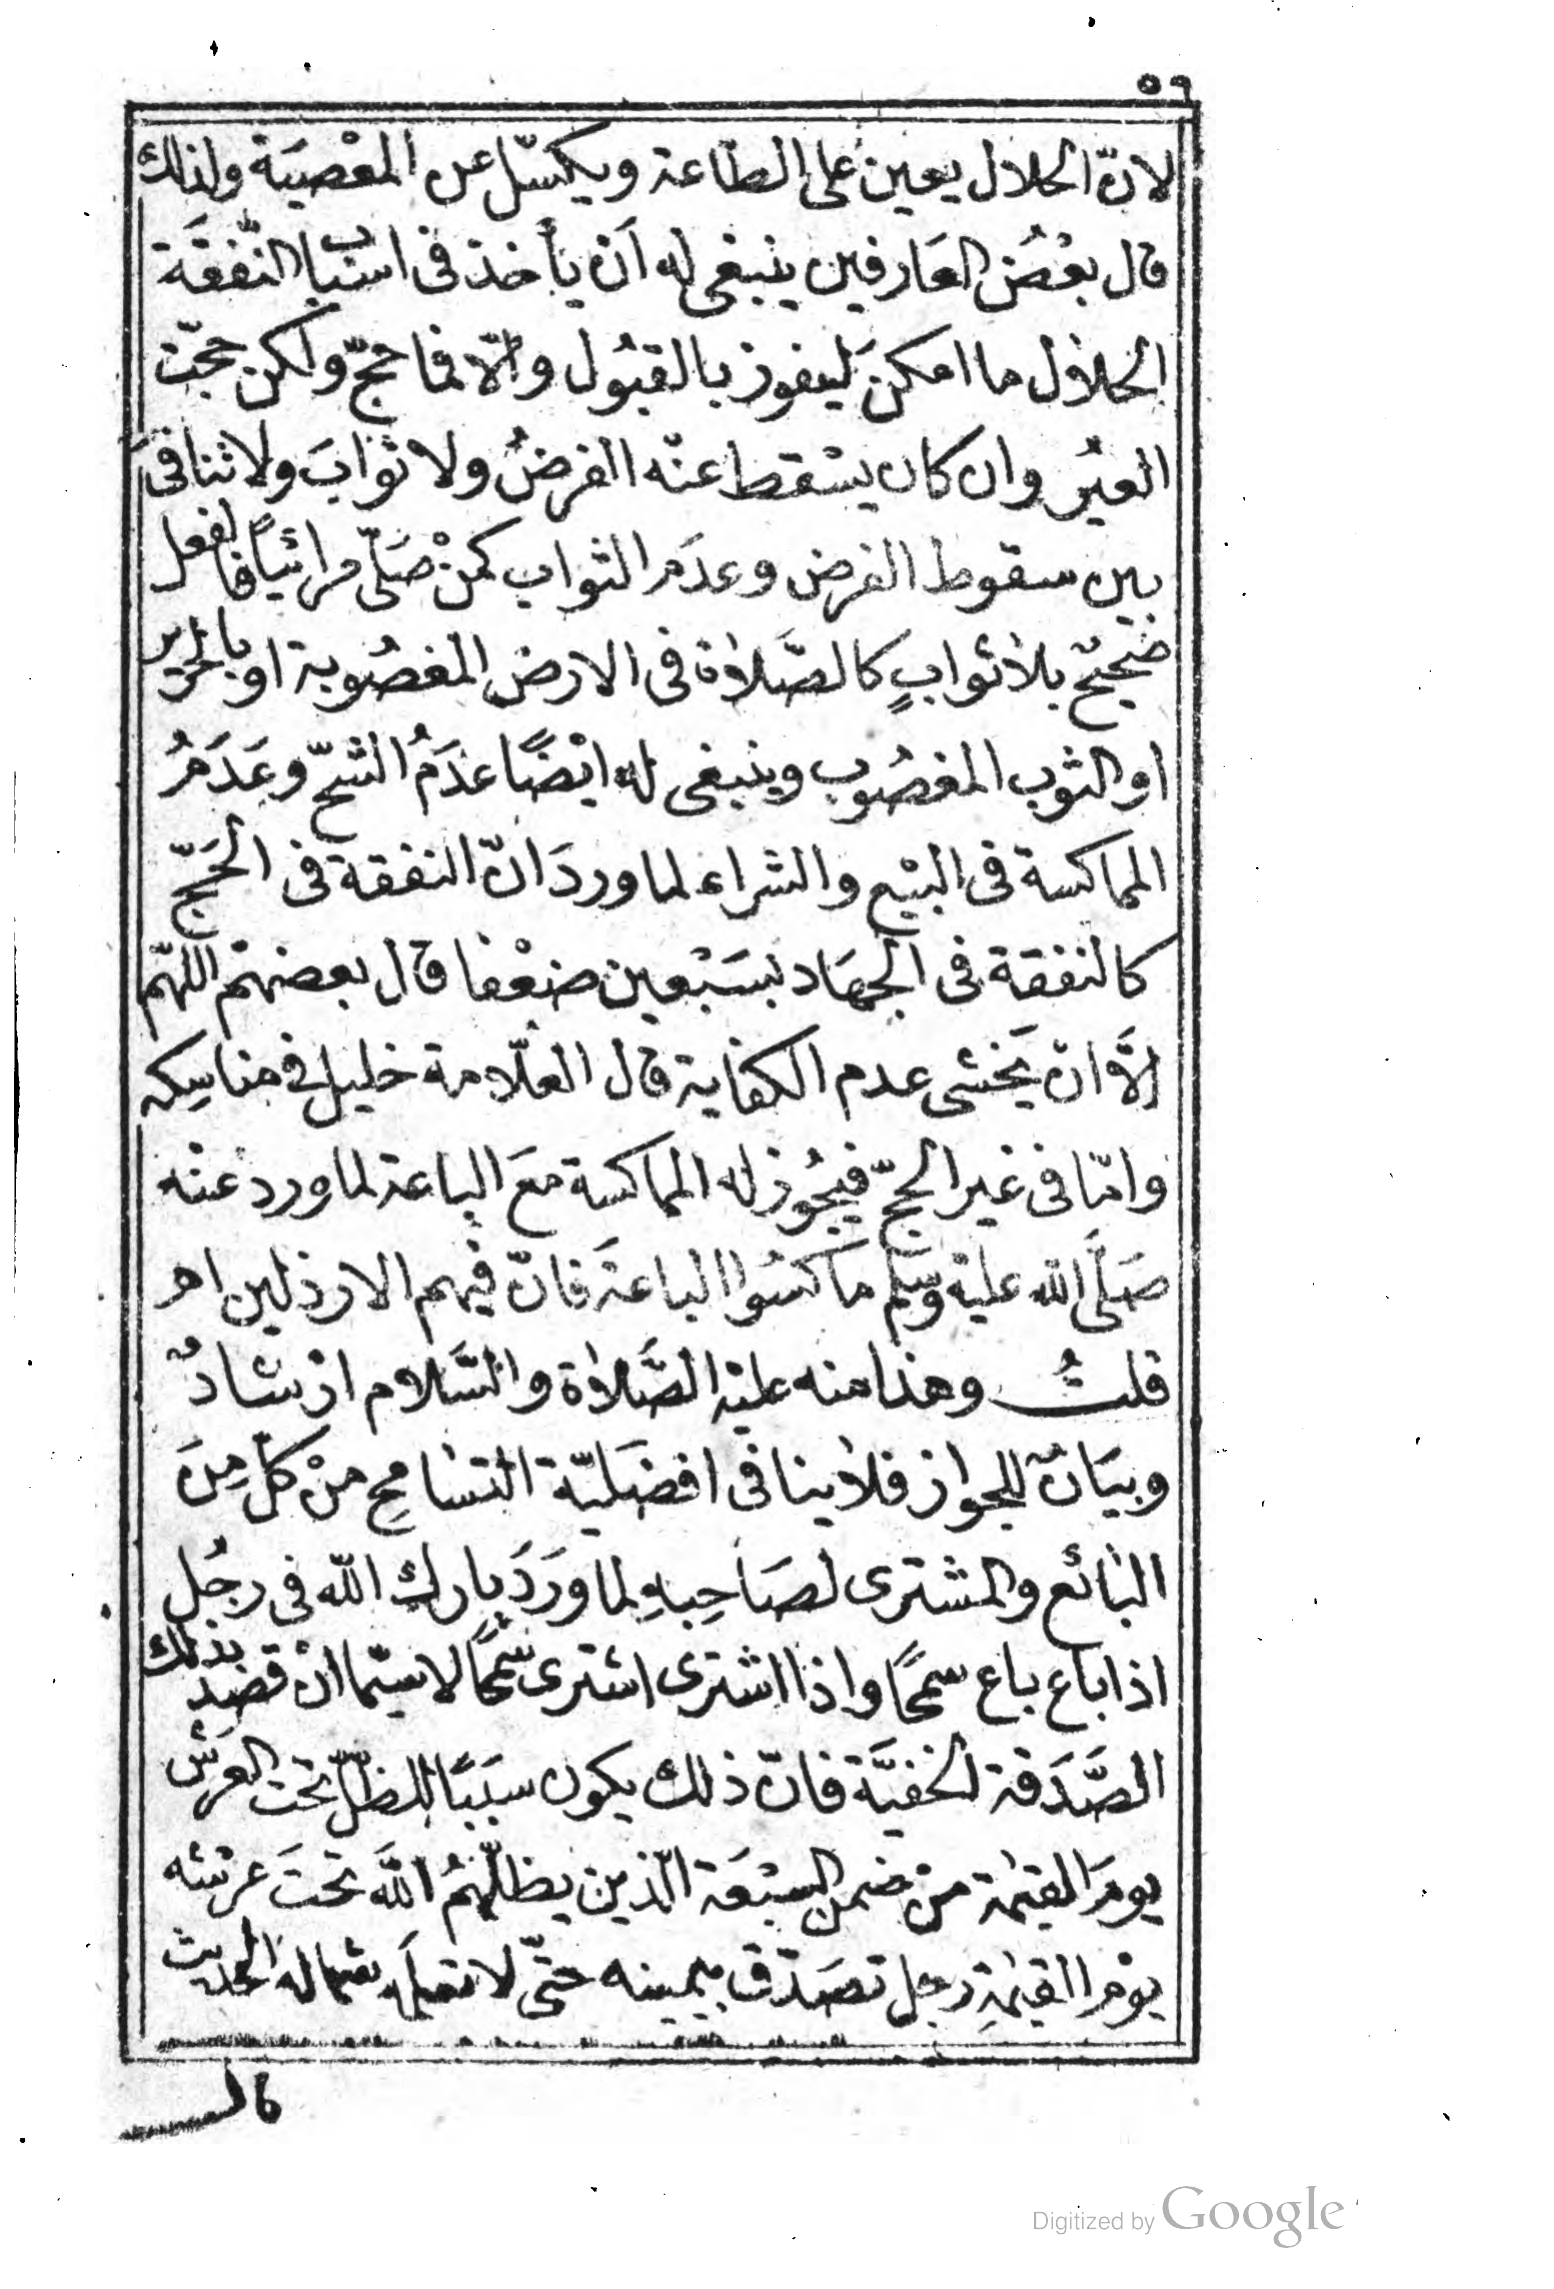 ٥٦
لانّ الحلال يعين على الطّاعة ويكسّل عن المعْصيَة ولذلك
قال بعْضُ العَارفين ينبغى له اَن يأخذ فى اسباب النّفقَة
الحلال ما امكنَ ليفوز بالقبُول والّا فما حجّ ولكن حجّت
العيْر وان كان يسْقط عنْه الفرضُ ولا ثوابَ ولا تنافىَ
بين سقوط الفرض وعدَم الثواب كمنْ صَلّى مرائياً فالفعل
صَحيحٌ بلا ثوابٍ كالصَّلاة فى الارض المغصُوبة او بالحرير
او الثوب المغصُوب وينبغى له ايْضًا عدَمُ الشحّ وعَدَمُ
المماكسة فى البيْع والشراء لما وردَ انّ النفقة فى الحَجّ
كالنفقة فى الجهَاد بسَبْعين ضعْفا قال بعضهمْ اللّهمّ
الَّا ان يَخشى عدم الكفاية قال العلّامة خليل فى مناسِكه
وامّا فى غير الحجّ فيجُوز له المماكسة مَع الباعة لما ورد عنْه
صَلَّى الله عليْه وسَلم ماكسُوا الباعة فَانّ فيهم الارذلين اهـ
قلتُ وهذا منه عليْه الصَّلاة والسَّلام ارْشادٌ
وبيَانٌ للجواز فلا ينافى افضَليّة التسَامح منْ كلّ مِنَ
البَائع والمشترى لصَاحِبهِ لما وَرَدَ بارك الله فى رجُل
اذا باع باع سمحًا واذا اشترى اشترى سَمحًا لا سيّما انْ قصَد بذلك
الصَّدَقة الخفيَّة فانّ ذلك يكون سبَبًا للظلّ تحت العرش
يومَ القيٰمة منْ ضمن السبْعَة الّذين يظلّهمُ اللَّه تحتَ عرْشه
يوْم القيٰمةِ رجل تصَدّق بيمينه حتّى لا تعلَم شماله الحديث
قال
Digitized by Google